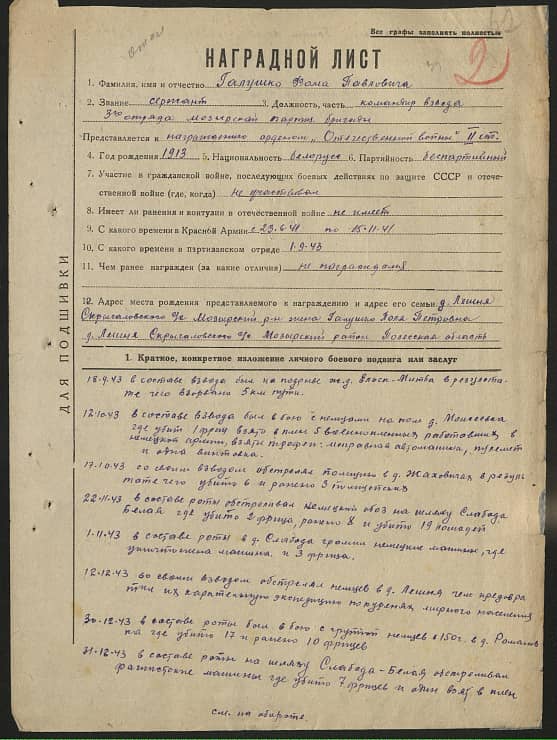 Все графы заполнять полностью
2
НАГРАДНОЙ ЛИСТ
1. Фамилия, имя и отчество Галушко Фома Павлович
2. Звание сержант 3. Должность, часть командир взвода
3го отряда мозырской партиз. бригады
Представляется к награждению орденом „Отечественной войны" II ст.
4. Год рождения 1913 5. Национальность белорус 6. Партийность беспартийный
7. Участие в гражданской войне, последующих боевых действиях по защите СССР и отече-
ственной войне (где, когда) не участвовал
8. Имеет ли ранения и контузии в отечественной войне не имеет
9. С какого времени в Красной Армии с 23.6.41 по 15.11.41
10. С какого времени в партизанском отряде 1.9.43
11. Чем ранее награжден (за какие отличия) не награждался
12. Адрес места рождения представляемого к награждению и адрес его семьи д. Лешня
Скрыгаловского с/с Мозырский р-н жена Галушко Петровна
д. Лешня Скрыгаловского с/с Мозырский район Полесская область
ДЛЯ ПОДШИВКИ
1. Краткое, конкретное изложение личного боевого подвига или заслуг
18.9.43 в составе взвода был на подрыве ж.д. в результа-
те чего взорвано 5 км пути.
12.10.43 в составе взвода был в бою с немцами на пом д. Моисеевка
где убит 1 фриц взято в плен 5 военнопленных работавших в
немецкой армии, взяты трофеи: исправная автомашина, пулемет
и одна винтовка.
17.10.43 со своим взводом обстрелял полицию в д. Жаховичах в резуль
тате чего убито 6 и ранено 3 полицейских
22.11.43 в составе роты обстреливал немецкий обоз на шляху Слобода
Белая где убито 2 фрица, ранено 8 и убито 19 лошадей
1.11.43 в составе роты в д. Слобода громил немецкие машины, где
уничтожена машина и 3 фрица.
12.12.43 со своим взводом обстрелял немцев в д. Лешня чем предовра
тил их карательную экспедицию по куреням мирного населения
30.12.43 в составе роты был в бою с группой немцев в 150ч. в д.
где убито 17 и ранено 10 фрицев
31.12.43 в составе роты на шляху Слобода-Белая обстреливал
фашистские машины где убито 7 фрицев и один взят в плен
см. на обороте